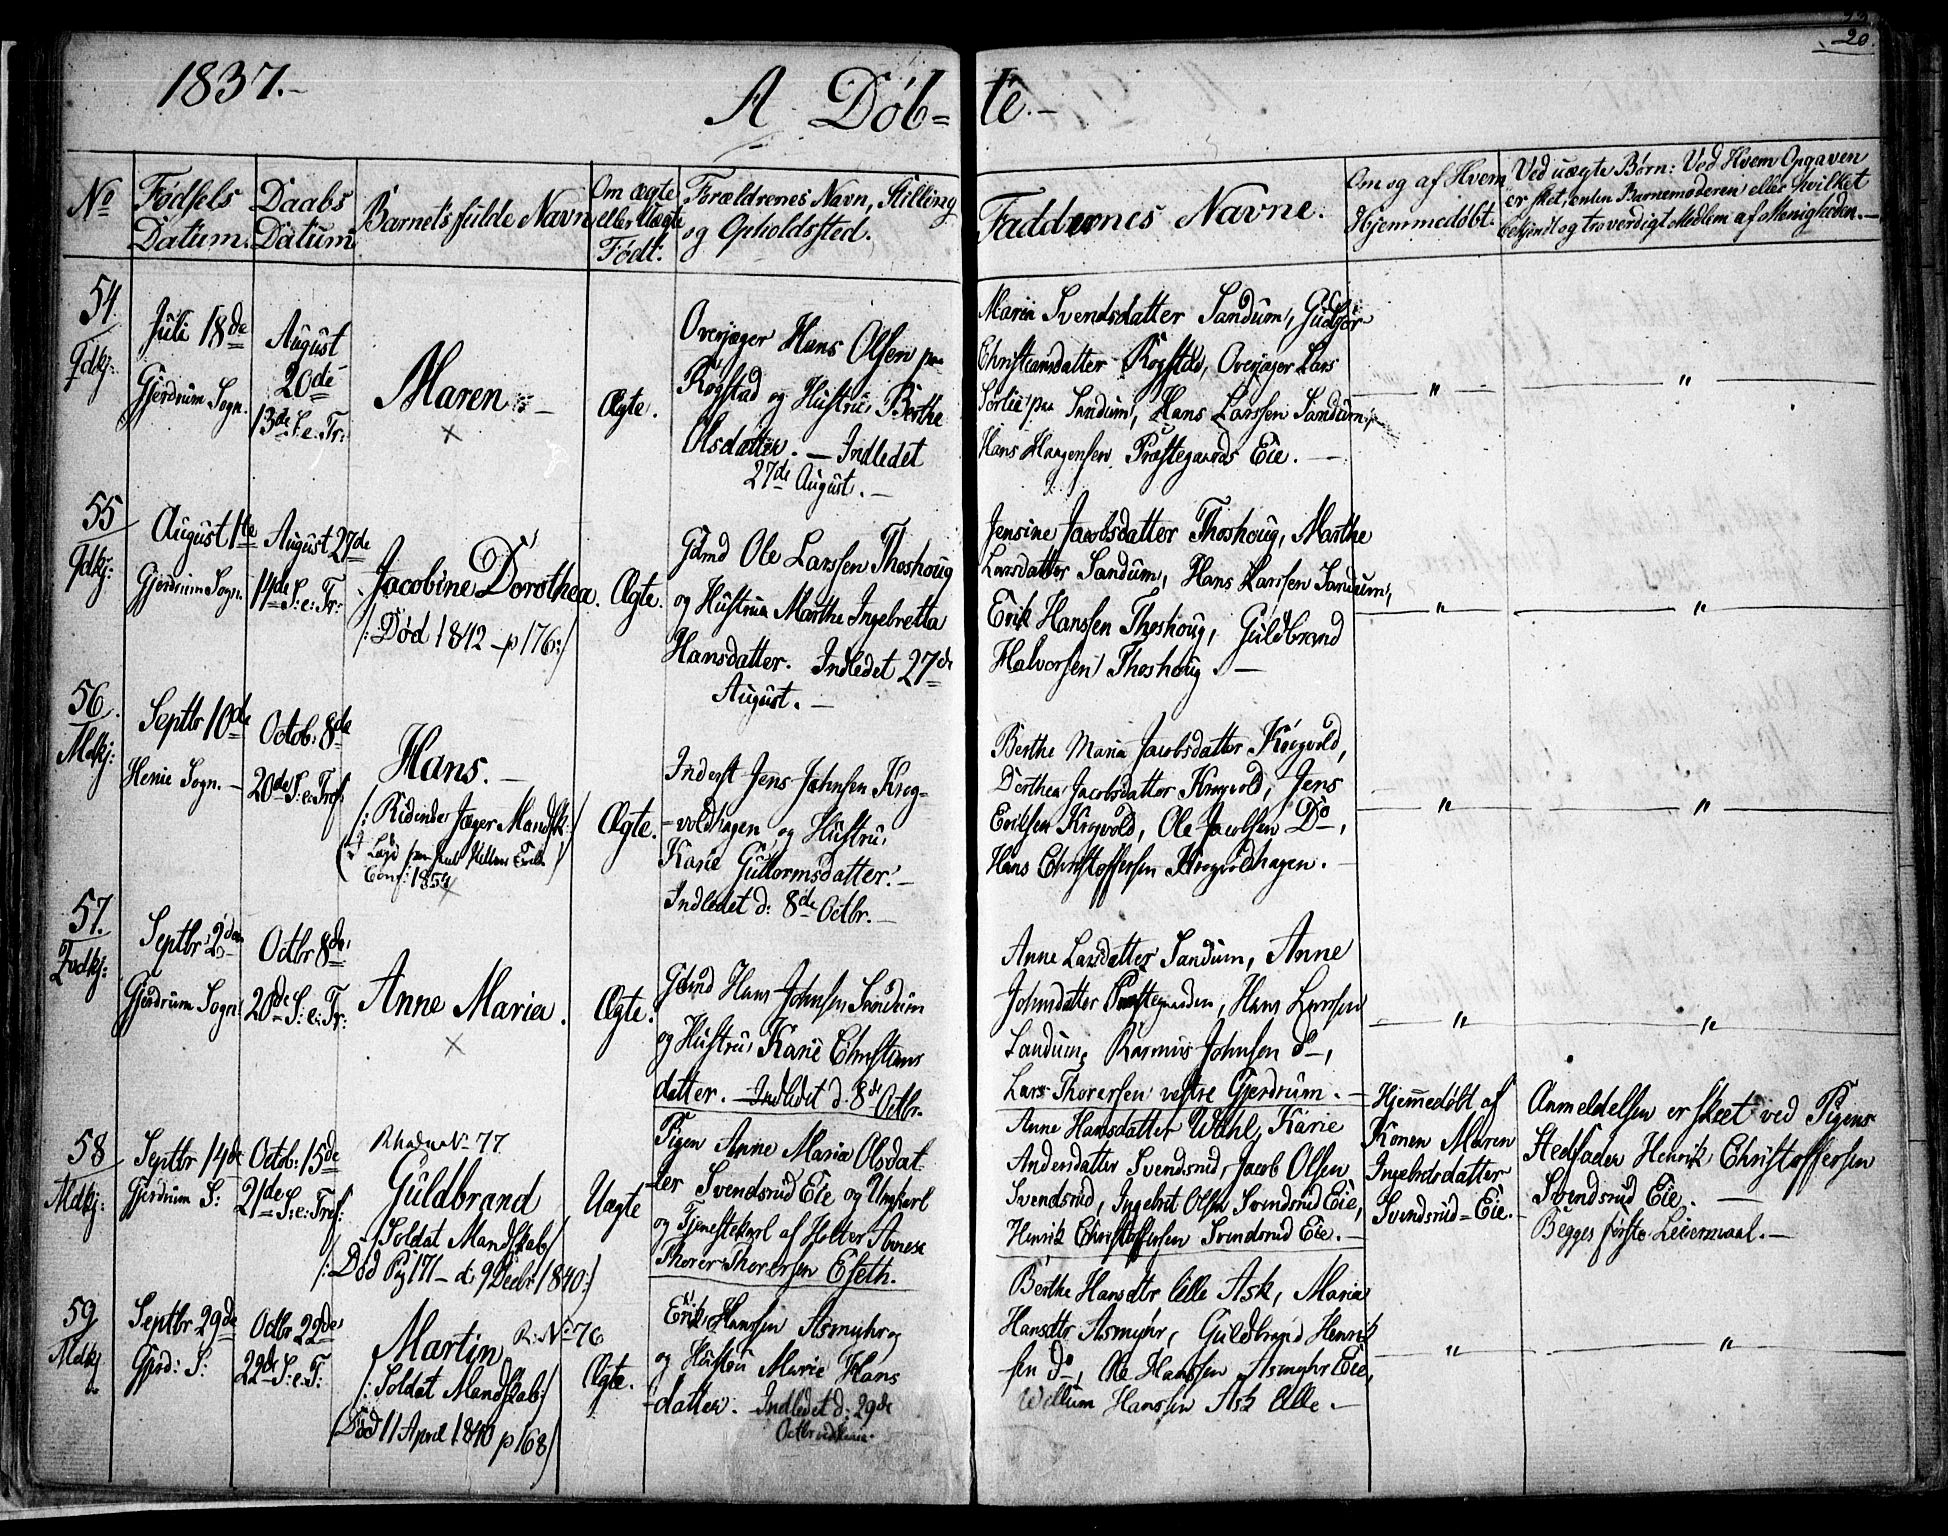 20.
1837.-
A Döb=
te.-
No
Födsels
Datum.
Daabs
Datum
Barnets fulde Navn
Om ægte
eller Uægte
Födt.
Forældrenes Navn, Stilling
og Opholdssted.
Faddrenes Navne.
Om og af Hvem
Hjemmedöbt.
Ved uægte Börn: Ved Hvem Opgaven
er sket, enten Barnemoderen eller hvilket
bekjendt og troverdigt Medlem af Menigheden.-
54.
Qdkj:
Juli 18de
Gjerdrum Sogn.
August
20de
13de S. e. Tr:
Maren
×
Ægte.
Overjæger Hans Olsen paa
Rogstad og Hustru Berthe
Olsdatter. - Indledet
27de August. -
Maria Svendsdatter Sandum,
Christiansdatter Rogstad, Overjæger Lars
Sörlie paa Sandum, Hans Larssen Sandum,
Hans Haagensen Præstegaards Eie. -
"
"
55
Qdkj:
August 1te
Gjerdrum Sogn.
August 27de
14de S: e: Tr:
Jacobine Dorothea.
/: Död 1842 - p 176:/
Ægte.
Gdmd Ole Larssen Thoshoug
og Hustrua Marthe Ingebretta
Hansdatter. Indledet 27de
August. -
Jensine Jacobsdatter Thoshoug, Marthe
Larsdatter Sandum, Hans Larssen Sandum,
Erik Hanssen Thoshoug, Guldbrand
Halvorsen Thoshoug. -
"
"
56.
Mdkj:
Septbr 10de
Henie Sogn. -
Octob: 8de
20de S: e: Tref:
Hans. -
/: Ridende Jæger Mandsk:/
Conf: 1854
×
Ægte.
Inderst Jens Johnsen Krog=
=voldhagen og Hustru
Karie Guttormsdatter. -
Indledet d: 8de Octbr. -
Berthe Maria Jacobsdatter Krogvold,
Dorthea Jacobsdatter Krogvold, Jens
Eriksen Krogvold, Ole Jacobsen Do,
Hans Christoffersen Krogvoldhagen. -
"
"
57.
Qvdkj:
Septbr 2den
Gjerdrum Sogn
Octbr 8de
20de S: e: Tr:
Anne Maria.
×
Ægte.
Gdmd Hans Johnsen Sandum
og Hustru Karie Christians
datter. - Indledet d. 8de Octbr.
Anne Larsdatter Sandum, Anne
Johnsdatter Præstegaarden, Hans Larssen
Sandum, Rasmus Johnsen do,
Lars Thorersen vestre Gjerdrum. -
"
"
58
Mdkj:
Septbr 14de
Gjerdrum S:
Octob: 15de
21de S: e: Tref:
No 77
Guldbrand
/: Soldat Mandskab/
/: Död Pag 171 - d: 9 Decbr 1840:/
Uægte
Pigen Anne Maria Olsdat
ter Svendsrud Eie og Ungkarl
og Tjenestekarl af Holter Annex
Thorer Thorersen Eseth.
Anne Hansdatter Wahl, Karie
Andersdatter Svendsrud, Jacob Olsen
Svendsrud, Ingebret Olsen Svendsrud Eie,
Henrik Christoffersen Svendsrud Eie. -
Hjemmedöbt af
Konen Maren
Ingebrdsdatter
Svendsrud=Eie.
Anmeldelsen er skeet ved Pigens
Stedfader Henrik Christoffersen
Svendsrud Eie. -
Begges förste Leiermaal. -
59
Mdkj
Septbr 29de
Gjerd: S:
Octbr 22de
22de S: e: T:
Martin R: No 76
/: Soldat Mandskab:/
(Död 11 April 1840 p 168)
Ægte.
Erik Hanssen Asmyhr
og Hustru Marie Hans
=datter. Indledet d: 29de
Octbr
Berthe Hansdtr lille Ask, Maria
Hansdtr Asmyhr, Guldbrand Henrik
sen do, Ole Hanssen Asmyhr Eie,
Willum Hanssen Ask lille. -
"
"